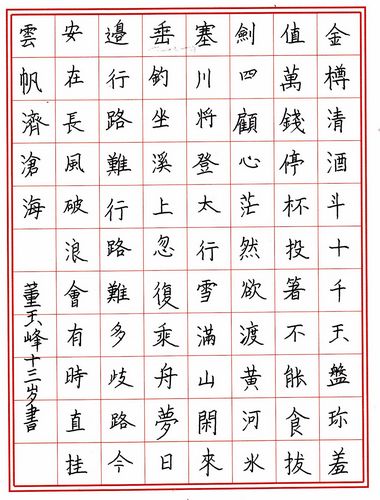 金樽清酒斗十千玉盤珎羞
值萬錢停杯投箸不能食拔
劍四顧心茫然欲渡黃河氷
塞川將登太行雪滿山閑來
垂釣坐溪上忽復乘舟夢日
邊行路難行路難多歧路今
安在長風破浪會有時直挂
雲帆濟滄海
董玉峰十三岁書